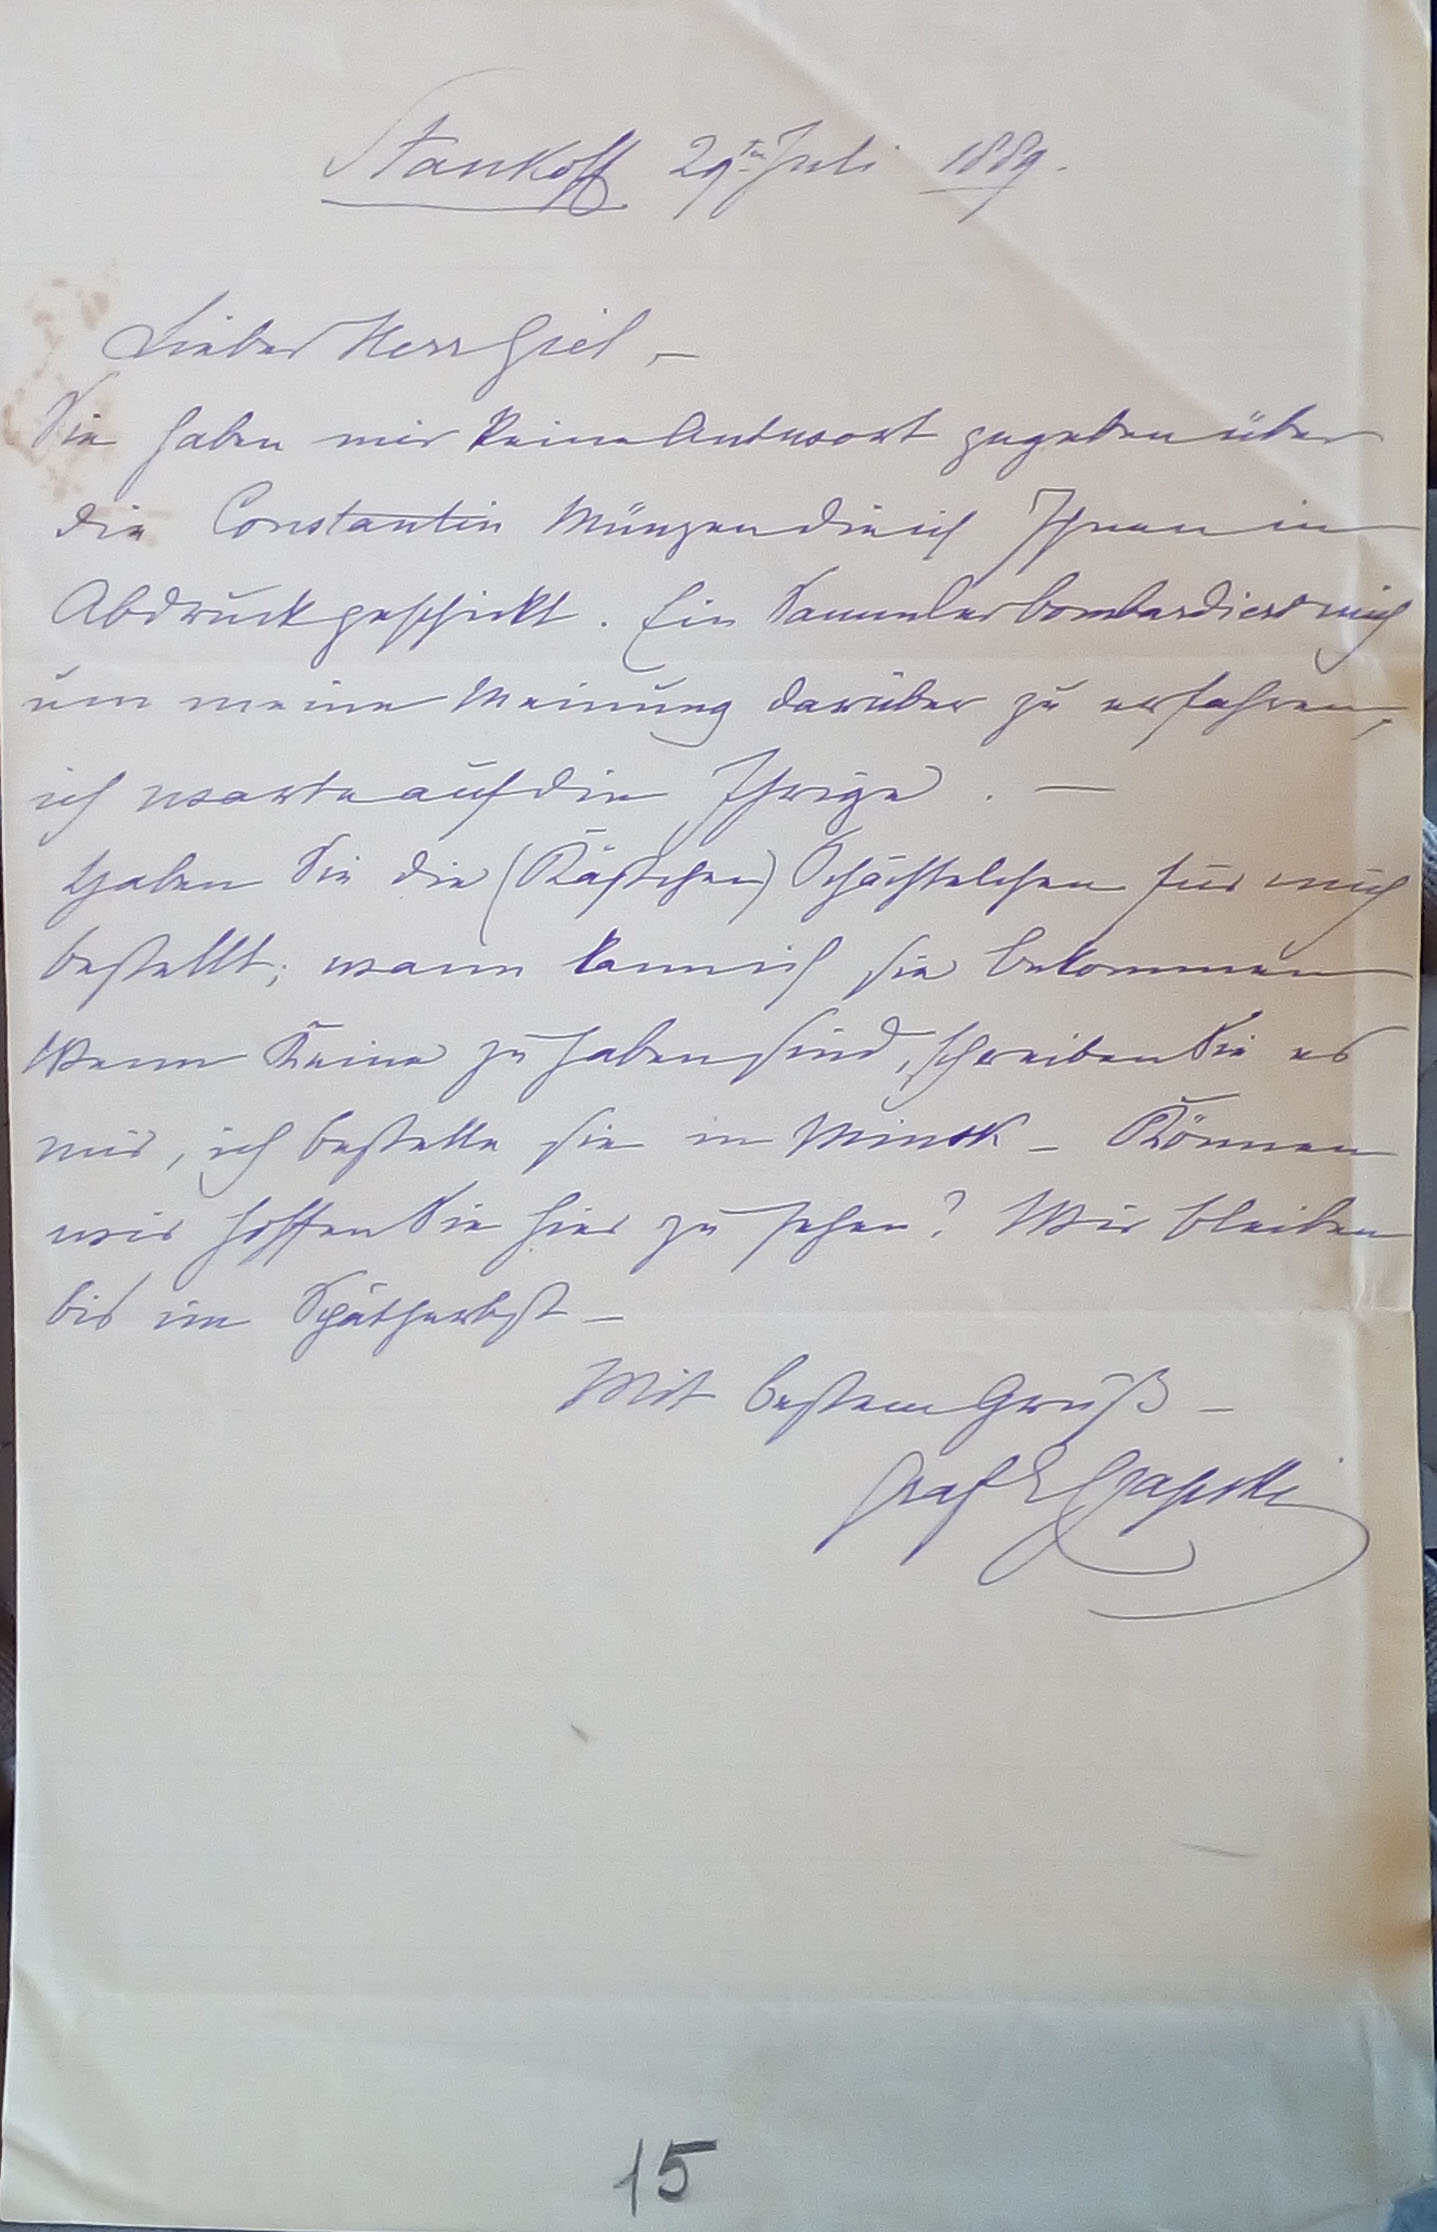 Stankoff 29ten Juli 1889.
Lieber Herr Giel –
Sie haben mir keine Antwort gegeben über
die Constantin Münzen die ich Ihnen in
Abdruck geschickt. Ein Sammler bombardiert mich
um meine Meinung darüber zu erfahren,
ich warte auf die Ihrige. –
Haben Sie die (Kästchen) Schächtelchen für mich
bestellt; wann kann ich sie bekommen
Wenn Keine zu haben sind, schreiben Sie es
mir, ich bestelle sie in Minsk – Können
wir hoffen Sie hier zu sehen? Wir bleiben
bis im Spätherbst –
Mit bestem Gruß –
Graf E Czapski
15